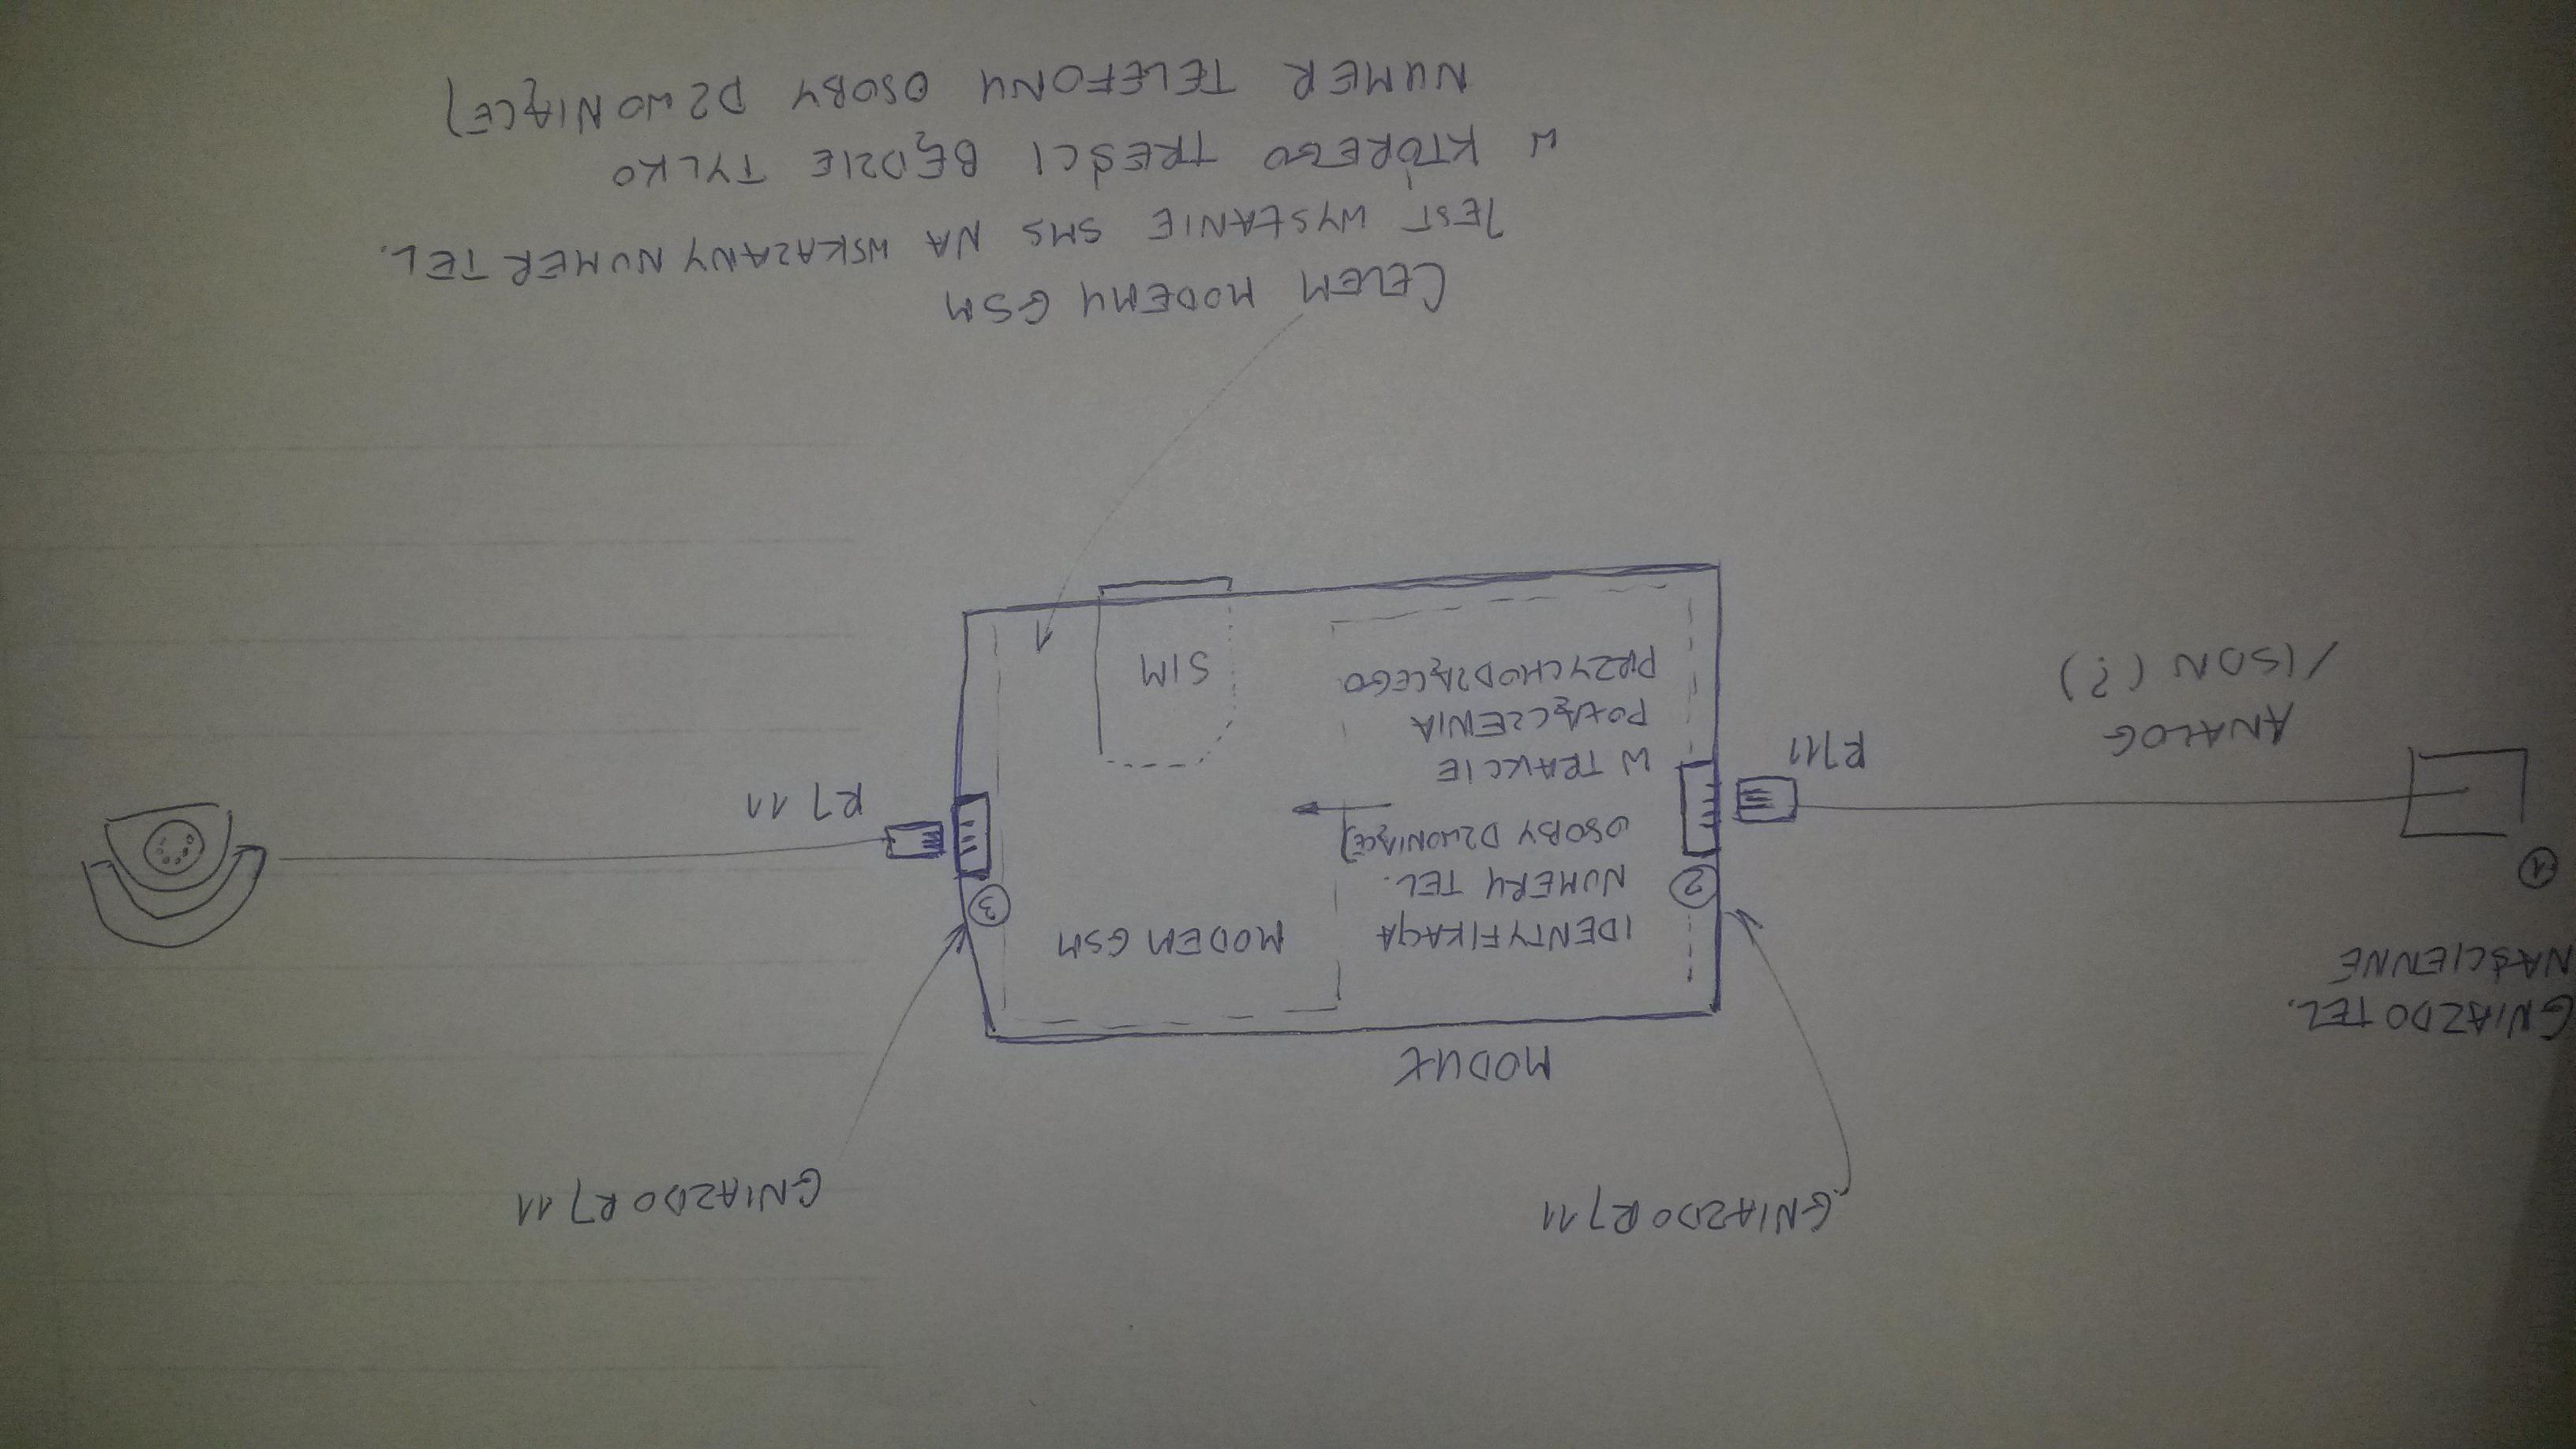 GNIAZDO RJ11
GNIAZDO RJ11
MODUŁ
GNIAZDO TEL.
NAŚCIENNE
1
ANALOG
/ISDN (?)
RJ11
2
IDENTYFIKACJA
NUMERU TEL.
OSOBY DZWONIĄCEJ
W TRAKCIE
POŁĄCZENIA
PRZYCHODZĄCEGO
MODEM GSM
SIM
3
RJ11
CELEM MODEMU GSM
JEST WYSŁANIE SMS NA WSKAZANY NUMER TEL.
W KTÓREGO TREŚCI BĘDZIE TYLKO
NUMER TELEFONU OSOBY DZWONIĄCEJ